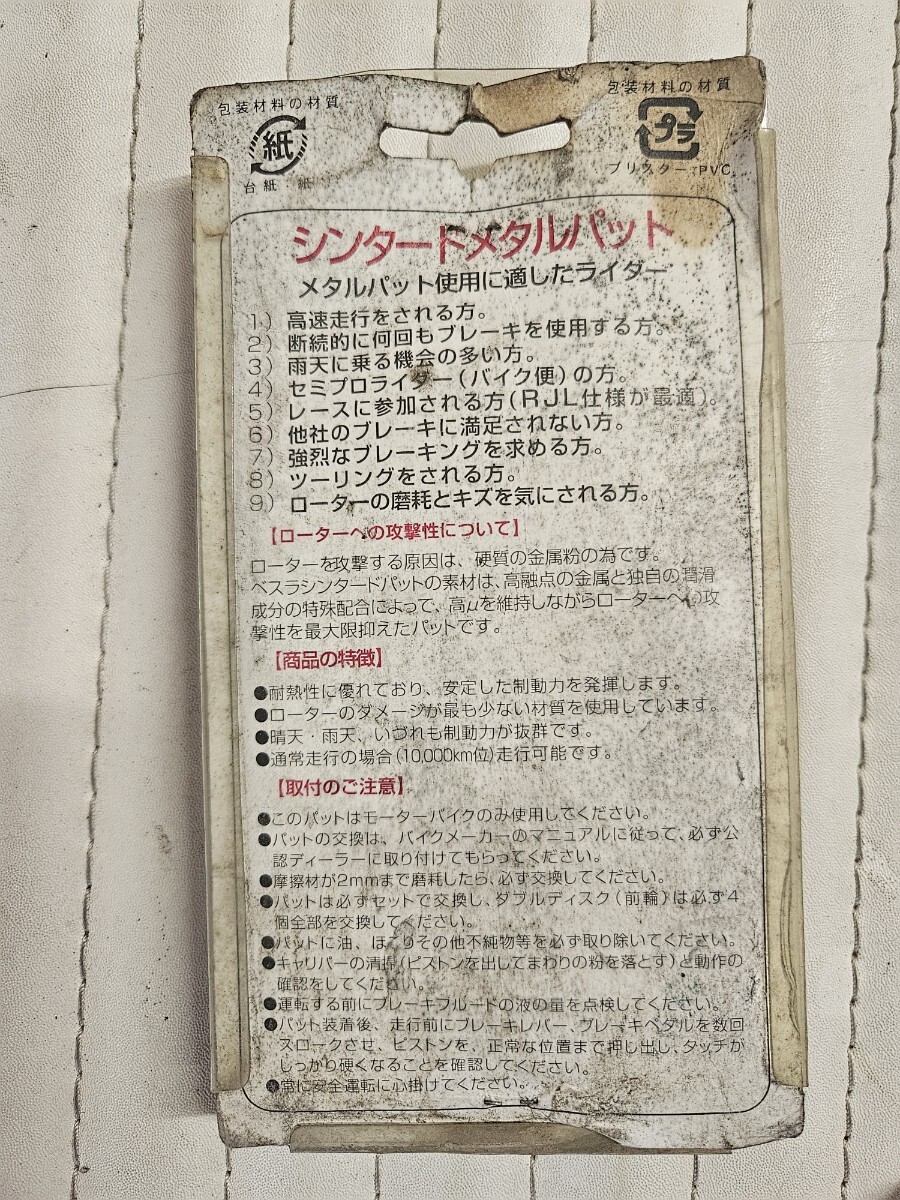 包装材料の材質
紙
台紙：紙
包装材料の材質
プラ
ブリスター：PVC
シンタードメタルパット
メタルパット使用に適したライダー
1）高速走行をされる方。
2）断続的に何回もブレーキを使用する方。
3）雨天に乗る機会の多い方。
4）セミプロライダー（バイク便）の方。
5）レースに参加される方（RJL仕様が最適）。
6）他社のブレーキに満足されない方。
7）強烈なブレーキングを求める方。
8）ツーリングをされる方。
9）ローターの磨耗とキズを気にされる方。
【ローターへの攻撃性について】
ローターを攻撃する原因は、硬質の金属粉の為です。
ベスラシンタードパットの素材は、高融点の金属と独自の潤滑
成分の特殊配合によって、高μを維持しながらローターへの攻
撃性を最大限抑えたパットです。
【商品の特徴】
●耐熱性に優れており、安定した制動力を発揮します。
●ローターのダメージが最も少ない材質を使用しています。
●晴天・雨天、いづれも制動力が抜群です。
●通常走行の場合（10,000km位）走行可能です。
【取付のご注意】
●このパットはモーターバイクのみ使用してください。
●パットの交換は、バイクメーカーのマニュアルに従って、必ず公
認ディーラーに取り付けてもらってください。
●摩擦材が2mmまで磨耗したら、必ず交換してください。
●パットは必ずセットで交換し、ダブルディスク（前輪）は必ず4
個全部を交換してください。
●パットに油、ほこりその他不純物等を必ず取り除いてください。
●キャリパーの清掃（ピストンを出してまわりの粉を落とす）と動作の
確認をしてください。
●運転する前にブレーキフルードの液の量を点検してください。
●パット装着後、走行前にブレーキレバー、ブレーキペダルを数回
ストロークさせ、ピストンを、正常な位置まで押し出し、タッチが
しっかり硬くなることを確認してください。
●常に安全運転に心掛けてください。